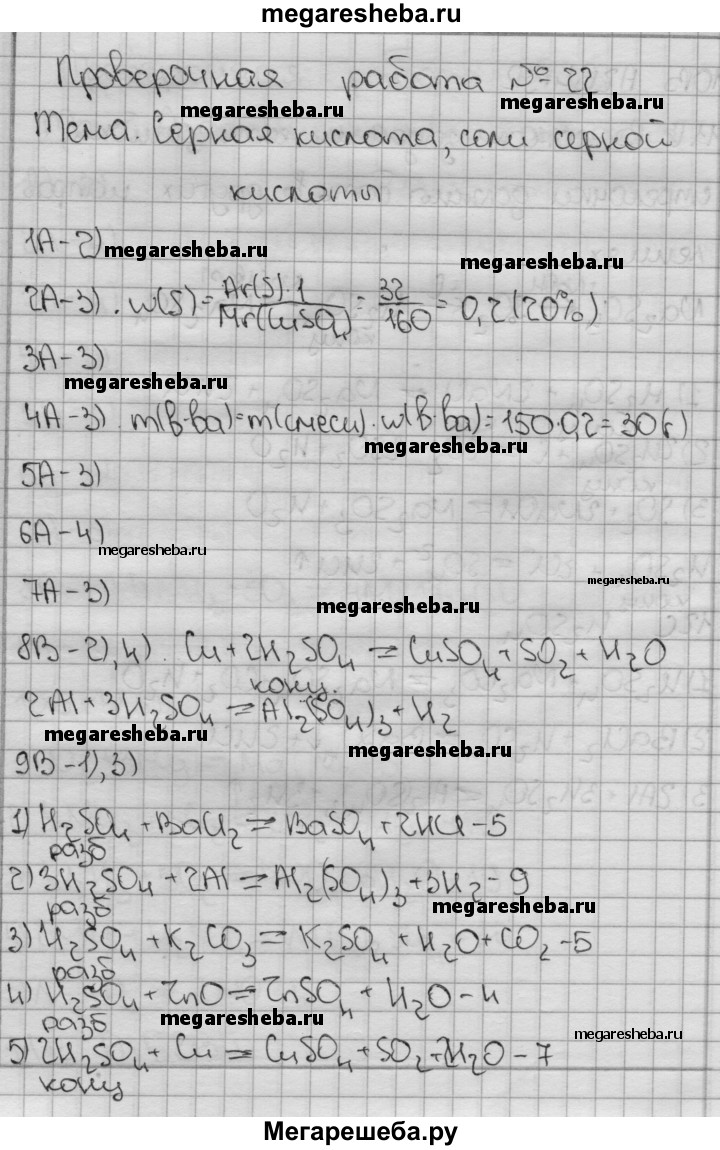 megaresheba.ru
Проверочная работа № 22
megaresheba.ru megaresheba.ru
Тема. Серная кислота, соли серной
кислоты
1А-2) megaresheba.ru
megaresheba.ru
2А-3). w(S)=Ar(S)·1/Mr(CuSO₄)=32/160=0,2(20%)
3А-3)
megaresheba.ru
4А-3). m(в-ва)=m(смеси)·w(в-ва)=150·0,2=30(г)
megaresheba.ru
5А-3)
6А-4)
megaresheba.ru
megaresheba.ru
7А-3)
megaresheba.ru
8В-2),4). Cu+2H₂SO₄=CuSO₄+SO₂+H₂O
конц.
2Al+3H₂SO₄=Al₂(SO₄)₃+H₂
megaresheba.ru
megaresheba.ru
9В-1),3)
1) H₂SO₄+BaCl₂=BaSO₄+2HCl-5
разб
2) 3H₂SO₄+2Al=Al₂(SO₄)₃+3H₂-9
разб megaresheba.ru
3) H₂SO₄+K₂CO₃=K₂SO₄+H₂O+CO₂-5
разб
4) H₂SO₄+ZnO=ZnSO₄+H₂O-4
разб megaresheba.ru
megaresheba.ru
5) 2H₂SO₄+Cu=CuSO₄+SO₂+2H₂O-7
конц
Мегарешеба.ру